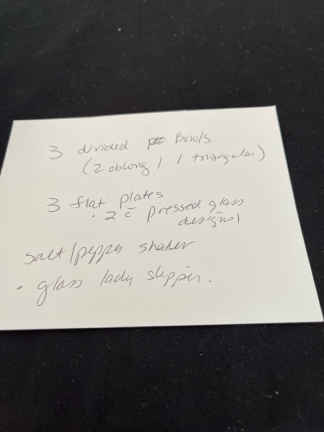 3 divided Bowls
(2 oblong / 1 triangular)
3 flat plates
• 2 c̄ pressed glass
designs
salt/pepper shaker
• glass lady slipper.